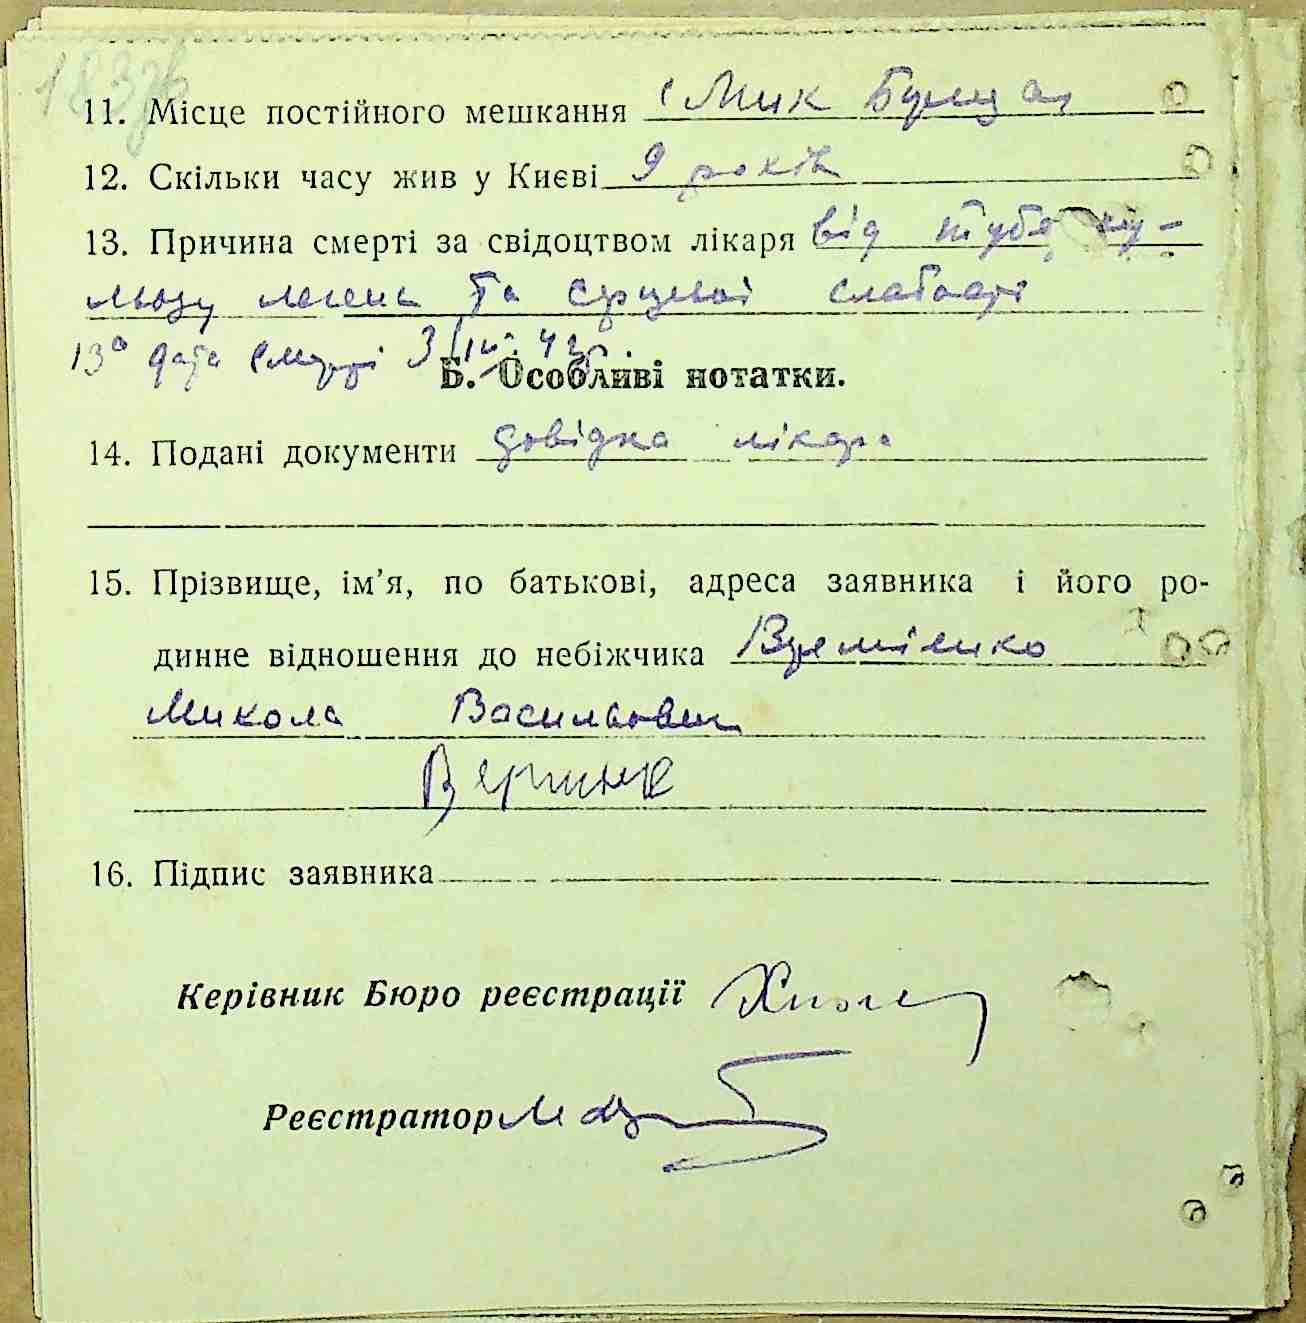 183зв
11. Місце постійного мешкання с Мик Бунда
12. Скільки часу жив у Києві 9 років
13. Причина смерті за свідоцтвом лікаря від туберку-
льозу легень та серцевої слабості
13а дата смерті 3/IV. 42 р.
Б. Особливі нотатки.
14. Подані документи довідка лікаря
15. Прізвище, ім’я, по батькові, адреса заявника і його ро-
динне відношення до небіжчика
Микола Васильович
16. Підпис заявника
Керівник Бюро реєстрації
Реєстратор